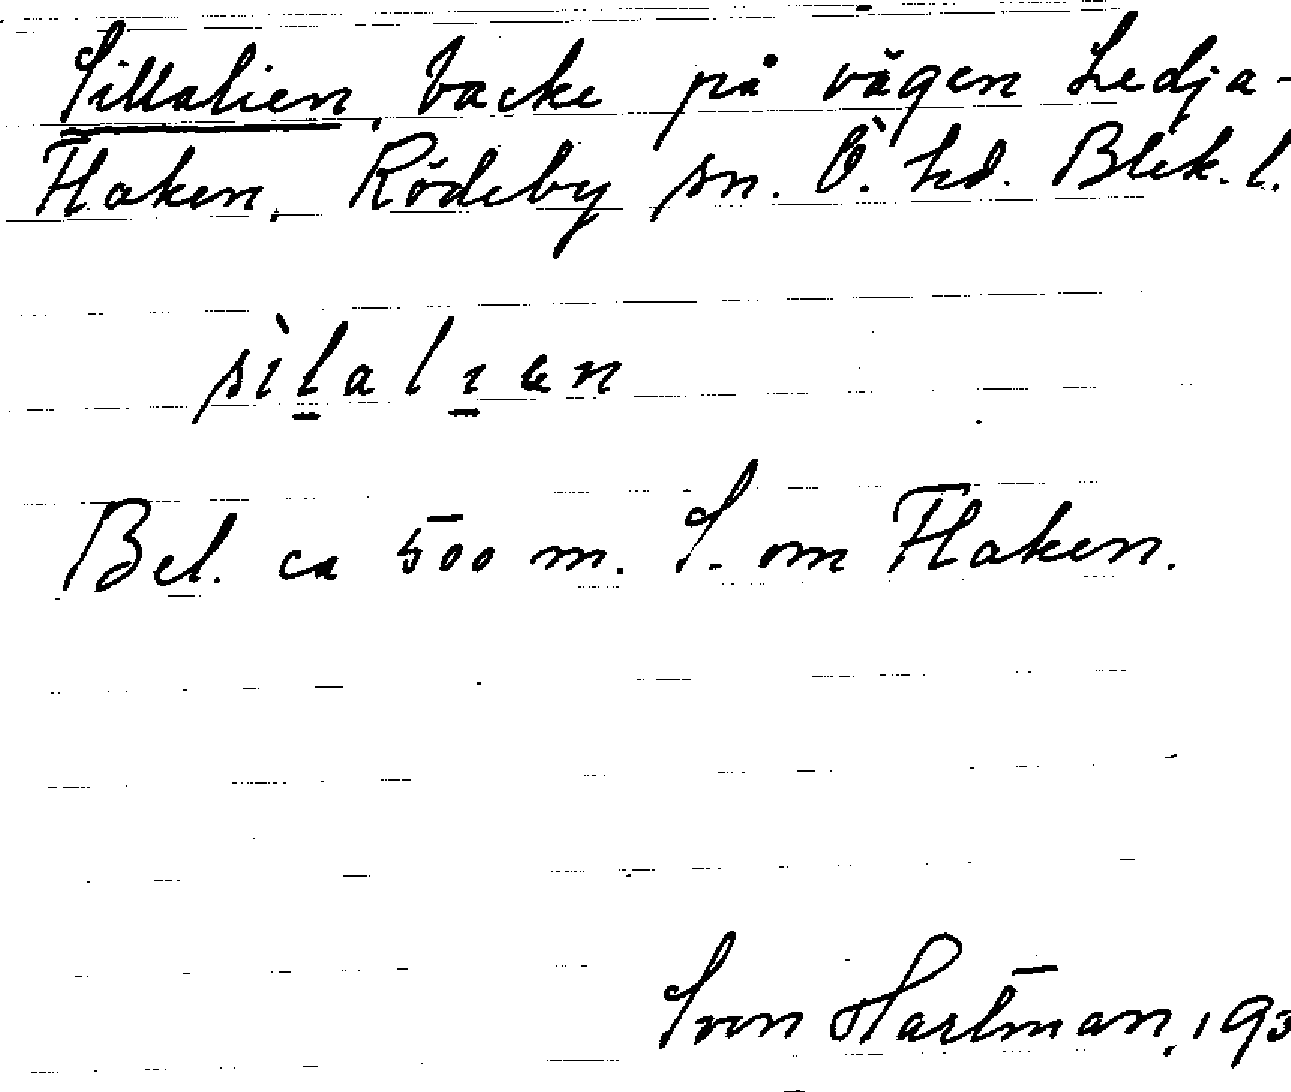 Sillalien, backe på vägen Ledja-
Flaken, Rödeby sn. Ö. hd. Blek. l.
sìlalıen
Bel. ca 500 m. S. om Flaken.
Sven Hartman, 193